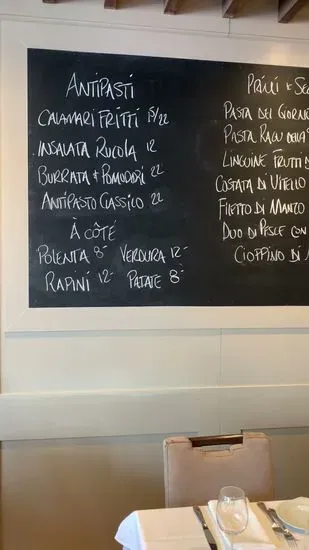 ANTIPASTI
CALAMARI FRITTI 15/22
INSALATA RUCOLA 12
BURRATA & POMODORI 22
ANTIPASTO CLASSICO 22
À CÔTÉ
POLENTA 8- VERDURA 12-
RAPINI 12- PATATE 8-
PRIMI & SE
PASTA DEL GIORNO
PASTA RAGU DELLA
LINGUINE FRUTTI D
COSTATA DI VITELLO
FILETTO DI MANZO
DUO DI PESCE CON
CIOPPINO DI